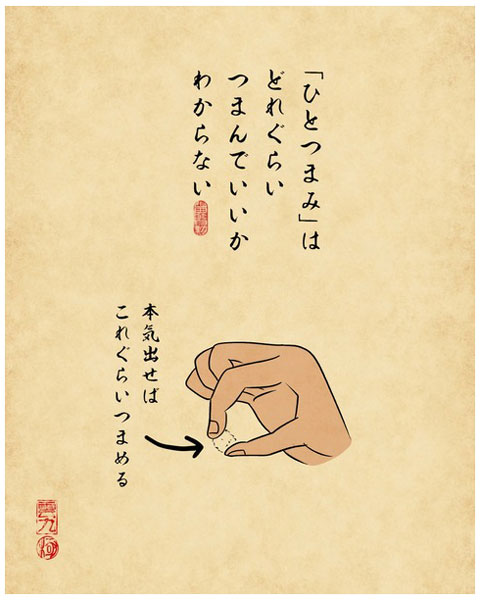 「ひとつまみ」は
どれぐらい
つまんでいいか
わからない
本気出せば
これぐらいつまめる